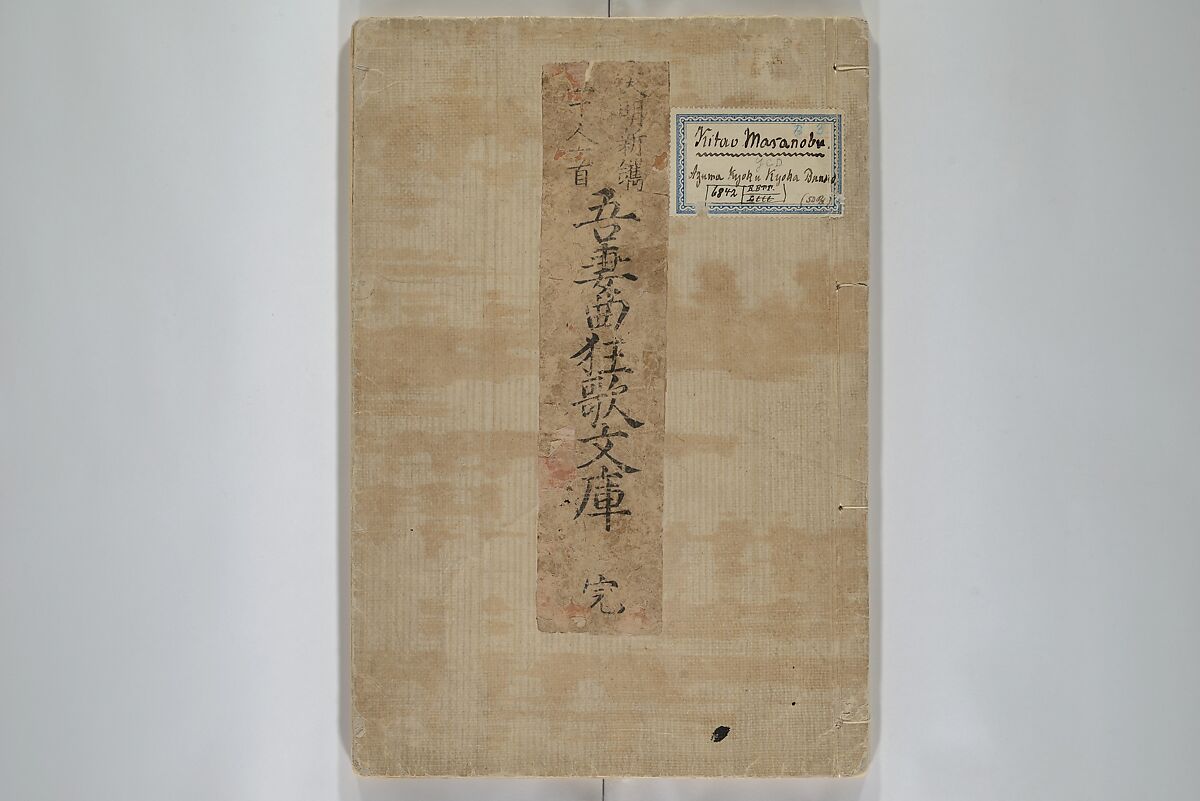 天明新鐫
五十人一首
吾妻曲狂歌文庫
完
Kitao Masanobu.
JCD
Azuma Kyoku Kyoka Bunko
6842